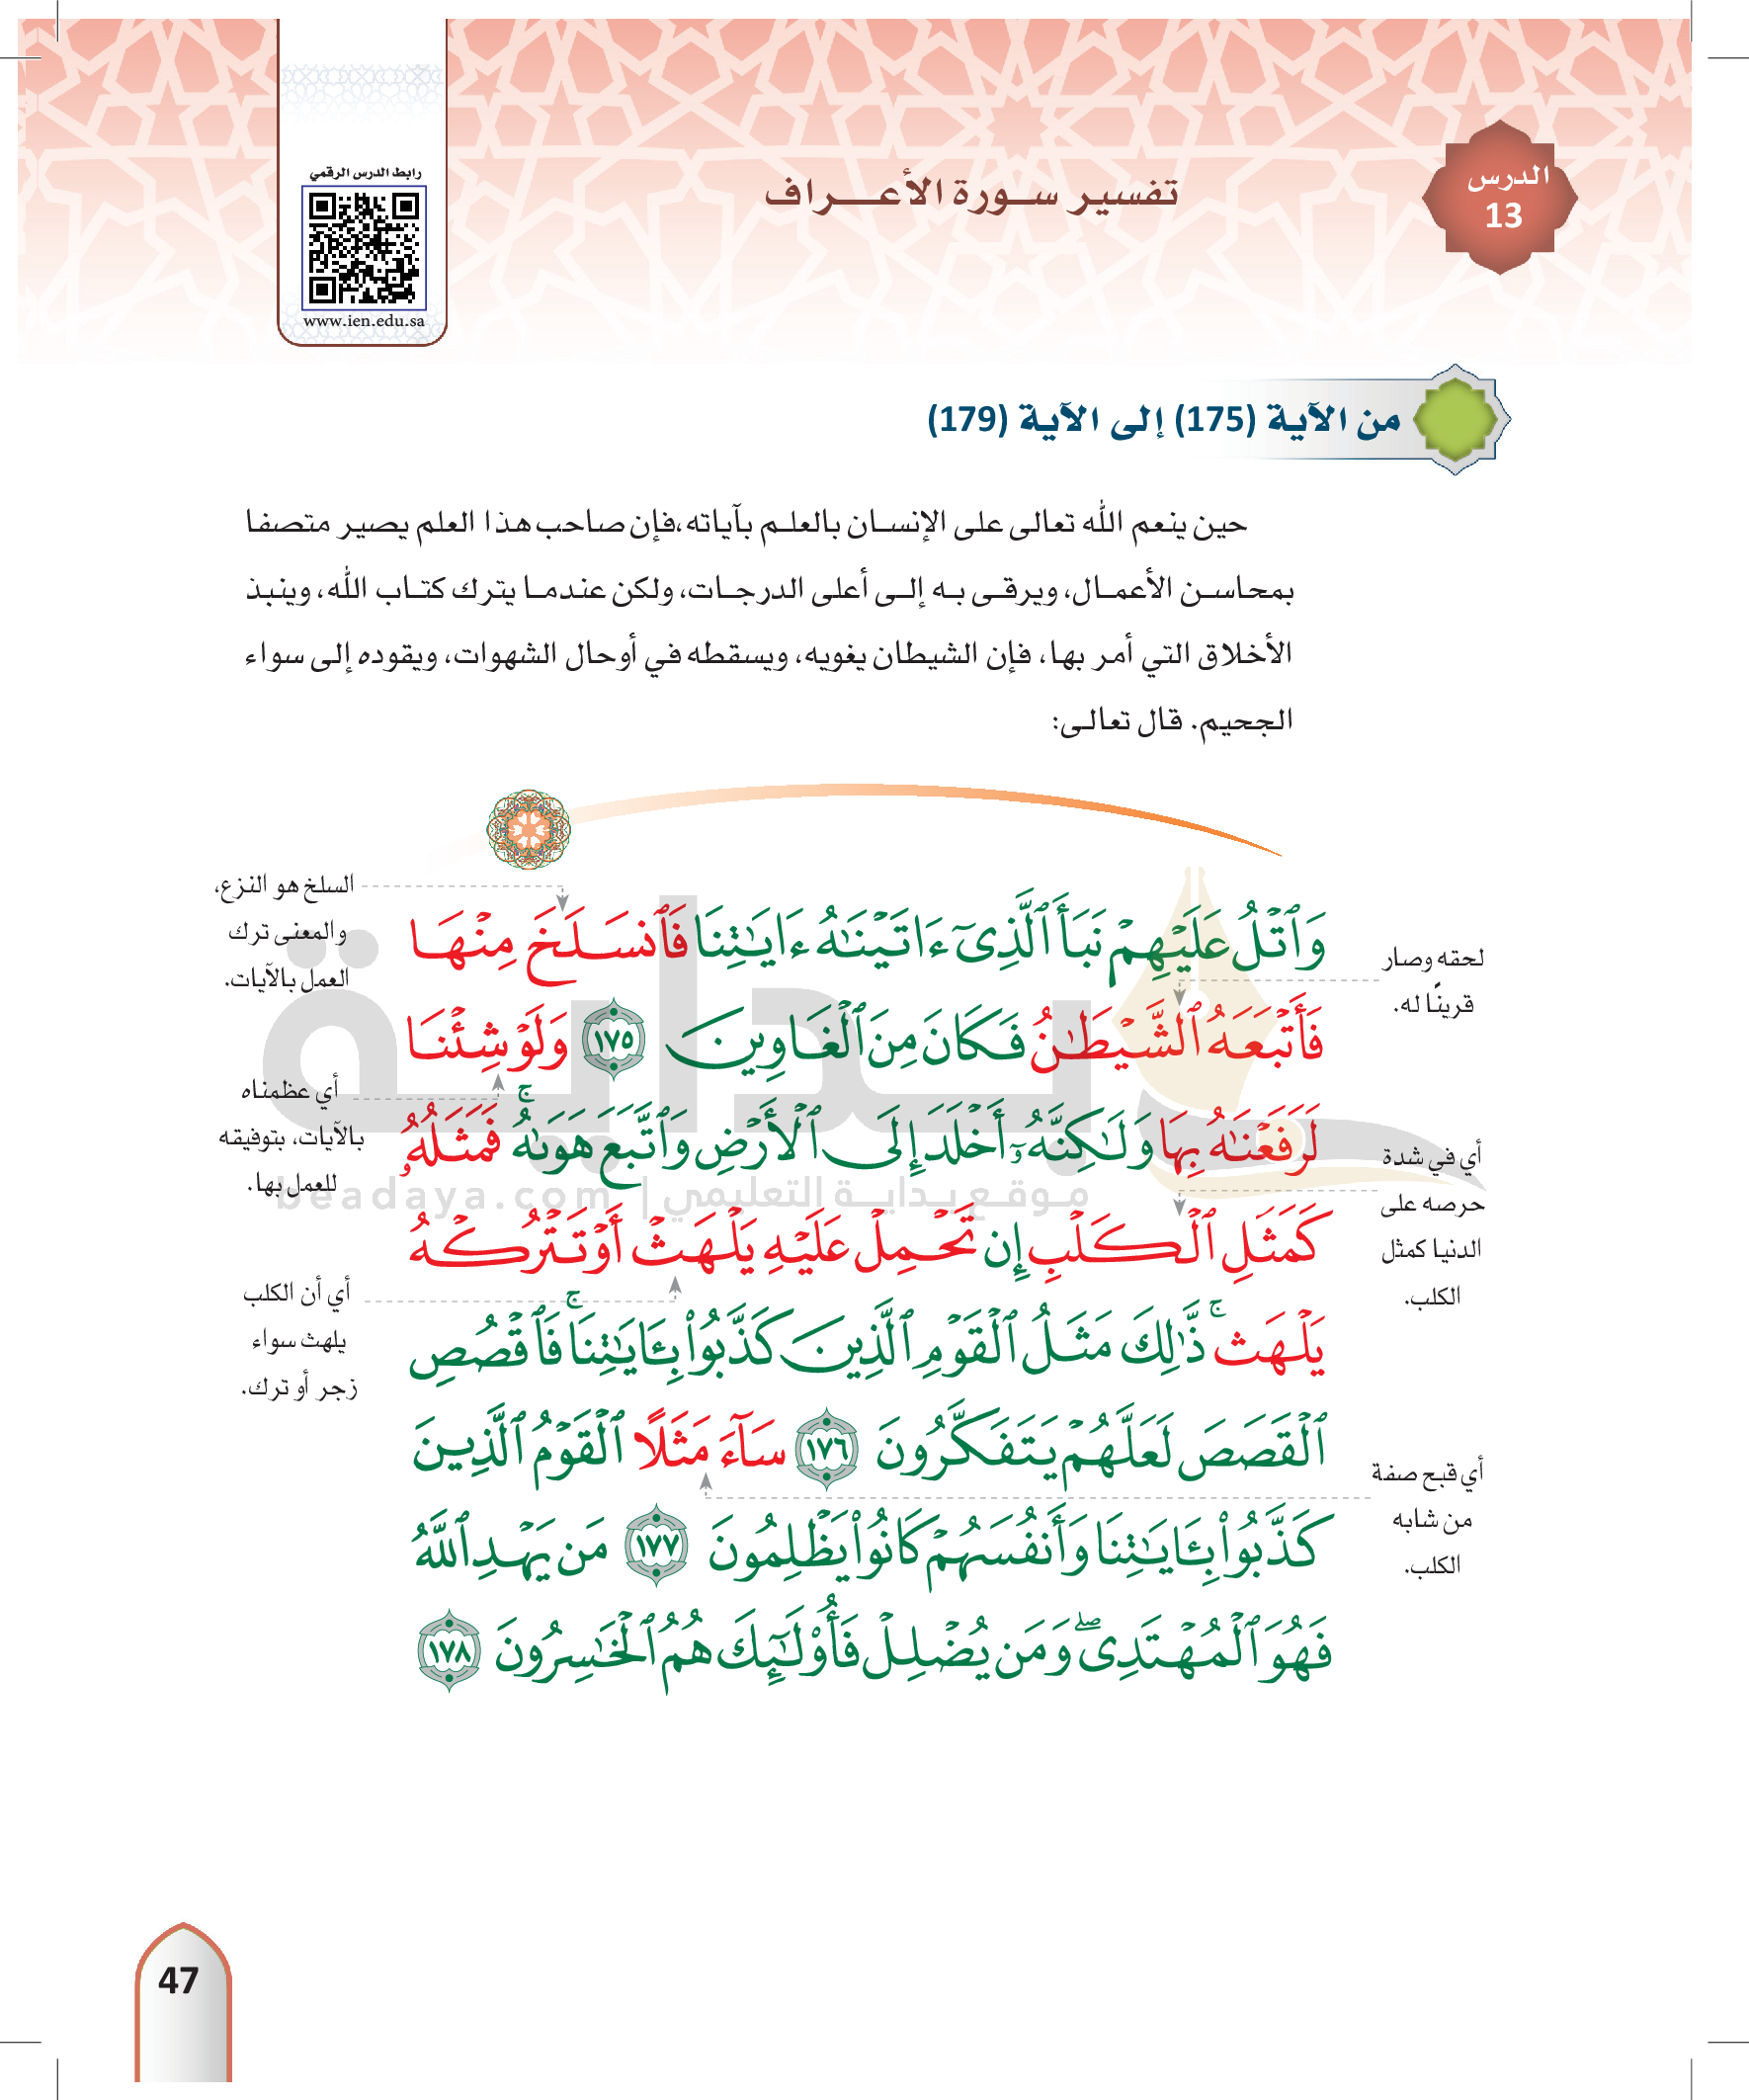 الدرس
13
تفسير سورة الأعراف
رابط الدرس الرقمي
www.ien.edu.sa
من الآية (175) إلى الآية (179)
حين ينعم الله تعالى على الإنسان بالعلم بآياته،فإن صاحب هذا العلم يصير متصفا
بمحاسن الأعمال، ويرقى به إلى أعلى الدرجات، ولكن عندما يترك كتاب الله، وينبذ
الأخلاق التي أمر بها، فإن الشيطان يغويه، ويسقطه في أوحال الشهوات، ويقوده إلى سواء
الجحيم. قال تعالى:
وَٱتۡلُ عَلَيۡهِمۡ نَبَأَ ٱلَّذِيٓ ءَاتَيۡنَٰهُ ءَايَٰتِنَا فَٱنسَلَخَ مِنۡهَا
فَأَتۡبَعَهُ ٱلشَّيۡطَٰنُ فَكَانَ مِنَ ٱلۡغَاوِينَ ١٧٥ وَلَوۡ شِئۡنَا
لَرَفَعۡنَٰهُ بِهَا وَلَٰكِنَّهُۥٓ أَخۡلَدَ إِلَى ٱلۡأَرۡضِ وَٱتَّبَعَ هَوَىٰهُۚ فَمَثَلُهُۥ
كَمَثَلِ ٱلۡكَلۡبِ إِن تَحۡمِلۡ عَلَيۡهِ يَلۡهَثۡ أَوۡ تَتۡرُكۡهُ
يَلۡهَثۚ ذَّٰلِكَ مَثَلُ ٱلۡقَوۡمِ ٱلَّذِينَ كَذَّبُواْ بِـَٔايَٰتِنَاۚ فَٱقۡصُصِ
ٱلۡقَصَصَ لَعَلَّهُمۡ يَتَفَكَّرُونَ ١٧٦ سَآءَ مَثَلًا ٱلۡقَوۡمُ ٱلَّذِينَ
كَذَّبُواْ بِـَٔايَٰتِنَا وَأَنفُسَهُمۡ كَانُواْ يَظۡلِمُونَ ١٧٧ مَن يَهۡدِ ٱللَّهُ
فَهُوَ ٱلۡمُهۡتَدِيۖ وَمَن يُضۡلِلۡ فَأُوْلَٰٓئِكَ هُمُ ٱلۡخَٰسِرُونَ ١٧٨
لحقه وصار
قرينًا له.
أي في شدة
حرصه على
الدنيا كمثل
الكلب.
أي قبح صفة
من شابه
الكلب.
السلخ هو النزع،
والمعنى ترك
العمل بالآيات.
أي عظمناه
بالآيات، بتوفيقه
للعمل بها.
أي أن الكلب
يلهث سواء
زجر أو ترك.
بداية
موقع بداية التعليمي | beadaya.com
47